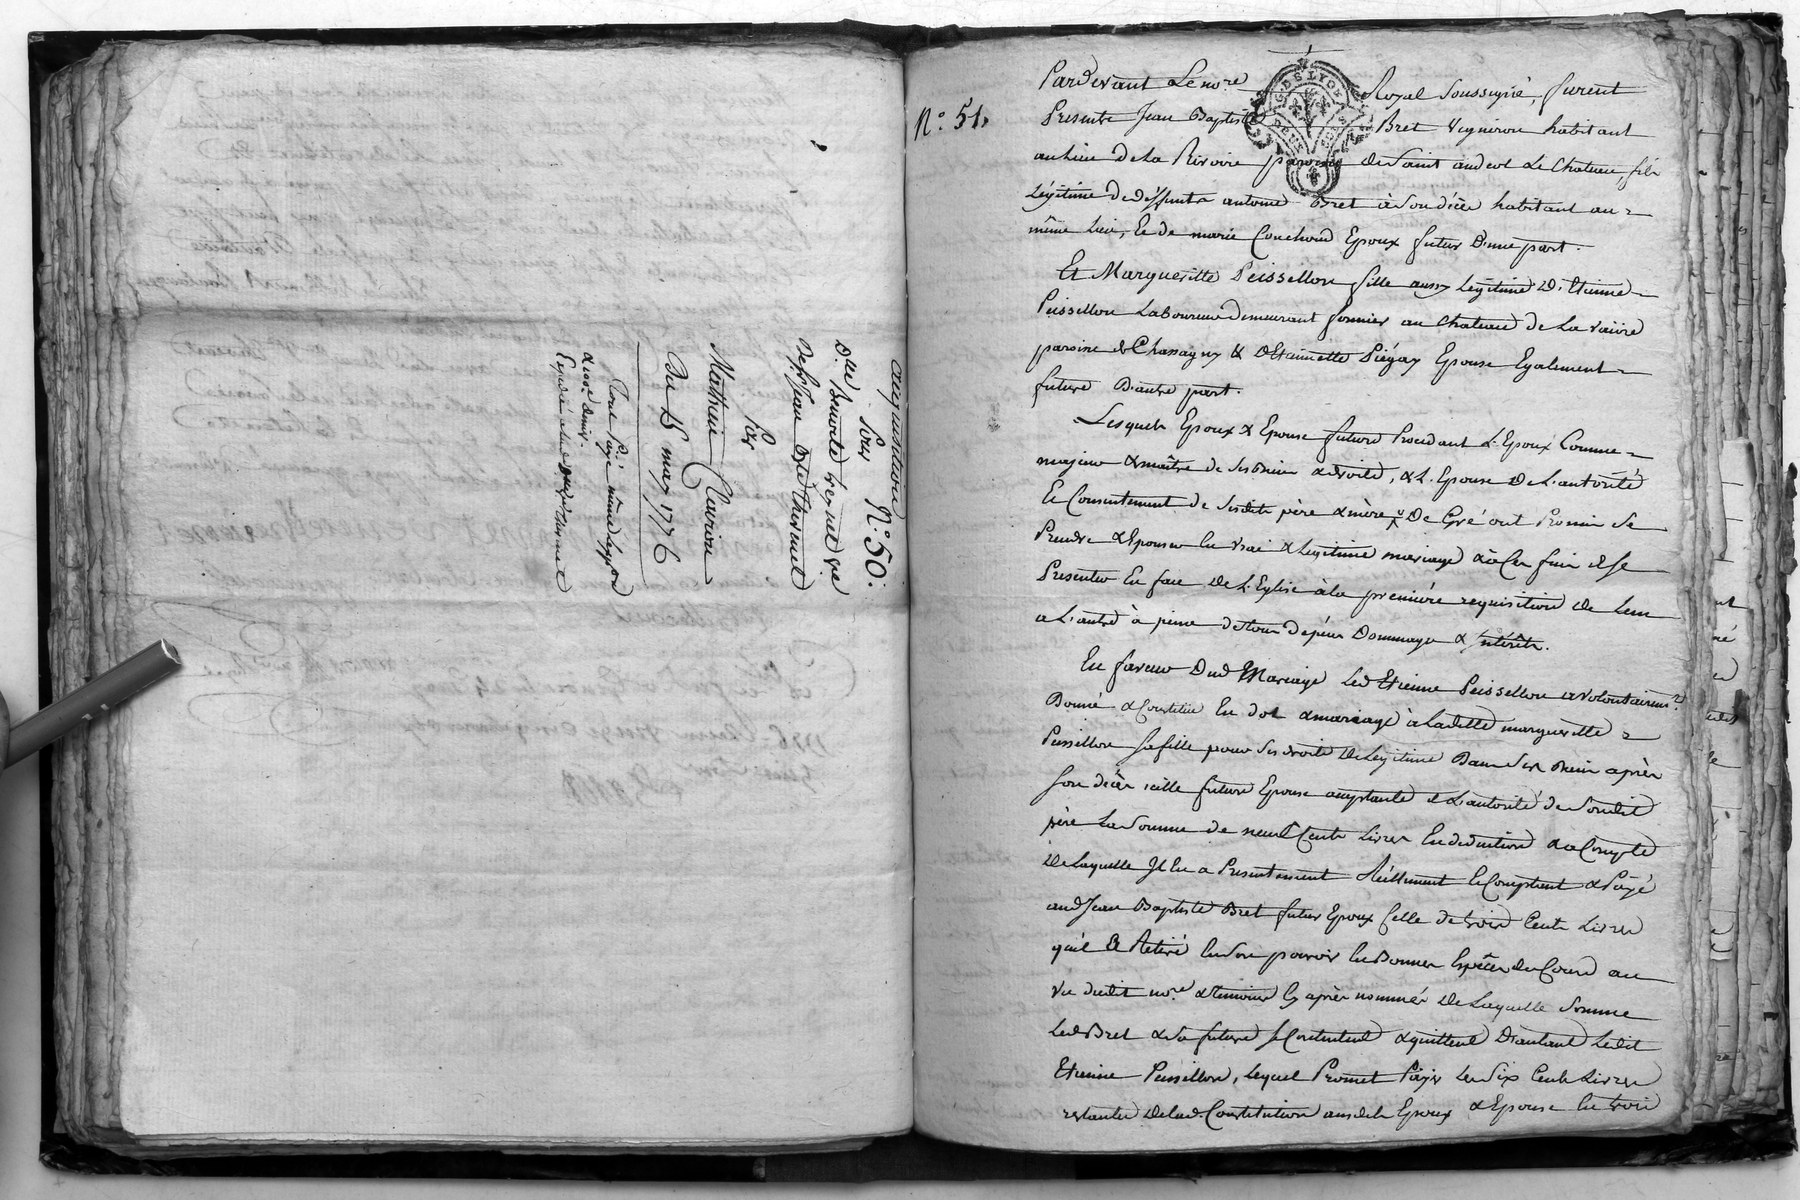 acquisition N.° 50.
Pour
D.lle Benoite vregnet ve
de Sr. Jean Bpte thevenet
Par
Mathieu Claviere
Du 15 may 1776
Tout Payé même Lexpon
Expedié a lad. ve thevenet
N.° 51.
Pardevant Le no.re Royal Soussigné, furent
Presents Jean Baptiste Bret vigneron habitant
au Lieu de La Rivoire paroisse de Saint andeol Le Chateau, fils
Légitime de deffunt antoine Bret à Son décès habitant au =
même Lieu, Et de marie Couchoud Epoux futur D'une part.
Et Margueritte Peissellon fille aussy Légitime D'Etienne
Peissellon Laboureur demeurant fermier au Chateau de La vaure
paroisse de Chassagny & D'Etiennette Piégay Epouse Egalement =
future D'autre part.
Lesquels Epoux & Epouse futurs Procédant L'Epoux Comme =
majeur & maître de Ses Biens & droits, & L'Epouse De L'autorité
Et Consentement de Sesdits père & mère, De Gré ont Promis Se
Prendre & Epouser En vrai & Légitime mariage & à Ces fins de Se
Presenter En face De L'Eglise à la première requisition De L'un
a L'autre à peine de tous dépens Dommages & intérêts.
En faveur Dud. Mariage Led. Etienne Peissellon a volontairemt
Donné & Constitué En dot & mariage à Laditte marguerite =
Peissellon Sa fille pour Ses droits De Légitime Dans Ses Biens après
Son décès icelle future Epouse acceptante de L'autorité de Sondit
père La Somme de neuf Cents Livres En déduction & à Compte
De Laquelle Il En a Présentement Réellement Et Comptant & Payé
aud. Jean Baptiste Bret futur Epoux Celle de trois Cents Livres
qu'il a Retiré En Son pouvoir En Bonnes Espèces de Cours au
vu dudit no.re & temoins Cy après nommés De Laquelle Somme
Led. Bret & Sa future Se Contentent & quittent D'autant Ledit
Etienne Peissellon, Lequel Promet Payer Les Six Cents Livres
restantes De Lad. Constitution auxdits Epoux & Epouse En trois